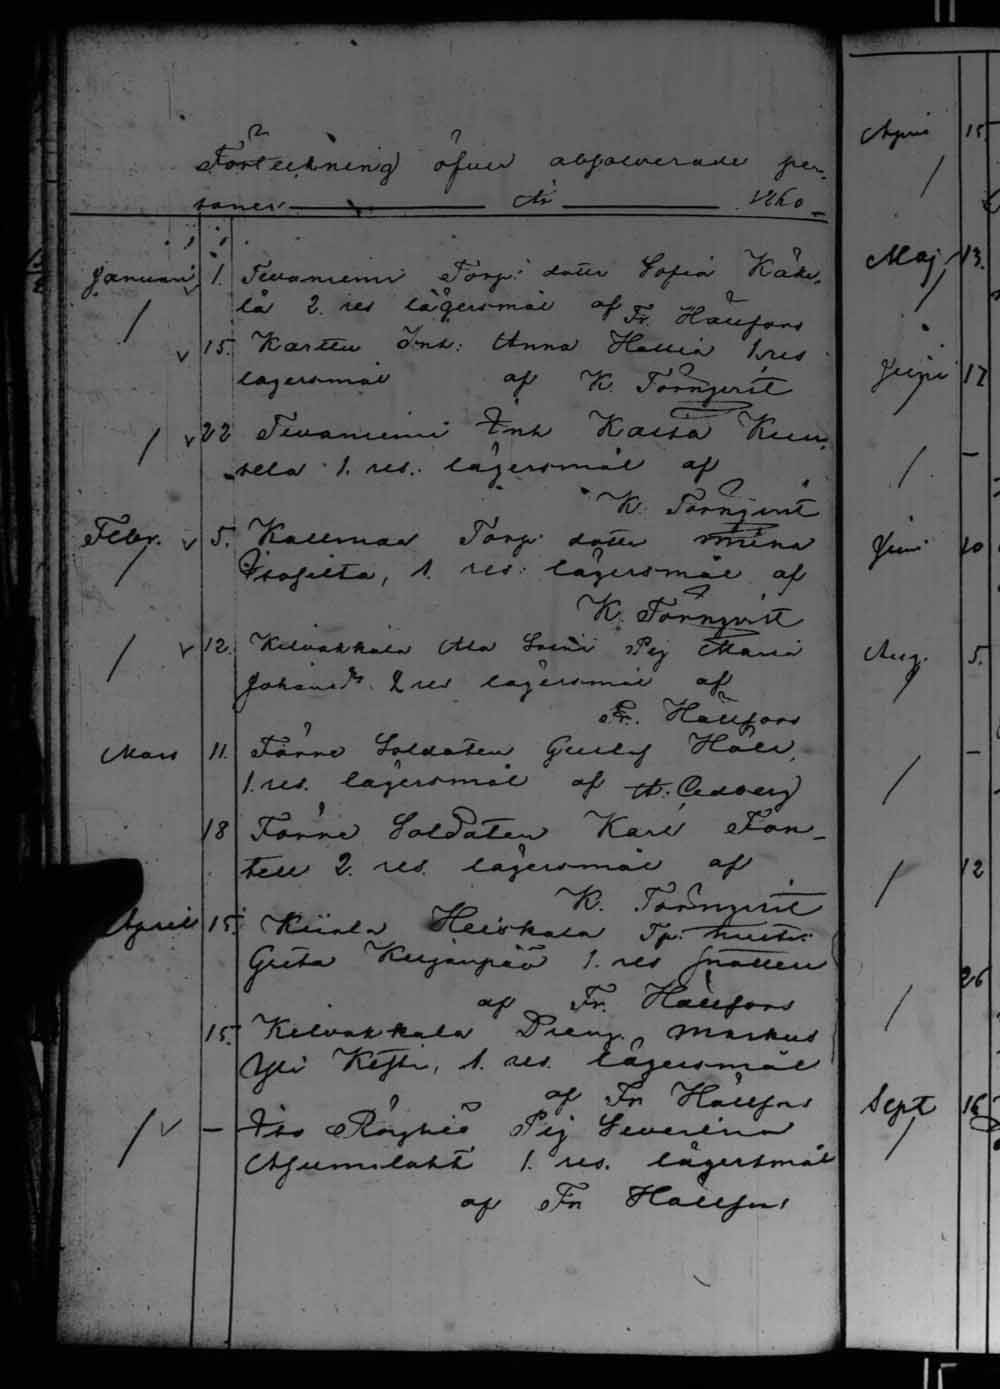 Förteckning öfver absolverade per-
soner År 1860
Januari 1. Tevaniemi Torp: dotter Sofia Käke-
lä 2. res lägersmål af Fr. Hällfors
15. Karttu Inh: Anna Hallia 1. res
lägersmål af K. Törnqvist
22 Tevaniemi Inh Kaisa Kuu-
sela 1. res. lägersmål af
K. Törnqvist
Febr. 5. Kallmaa Torp. dotter Mina
Isosilta, 1. res: lägersmål af
K. Törnqvist
12. Kilvakkala Ala Soini Pig Maria
Johansdr. 2 res lägersmål af
Fr. Hällfors
Mars 11. Förre Soldaten Gustaf Håll,
1. res. lägersmål af A. Cedberg
18 Förre Soldaten Karl Fon-
tell 2. res. lägersmål af
K. Törnqvist
April 15. Kiiala Heiskala Tp. hustr:
Greta Kujanpää 1. res snatteri
af Fr. Hällfors
15. Kilvakkala Dreng. Markus
Yli Kesti, 1. res. lägersmål
af Fr Hällfors
— Iso Röyhiö Pig Severina
1. res. lägersmål
af Fr Hällfors
April 15
Maj 13.
17
—
Juni 10
Aug. 5.
—
12
26
Sept 16